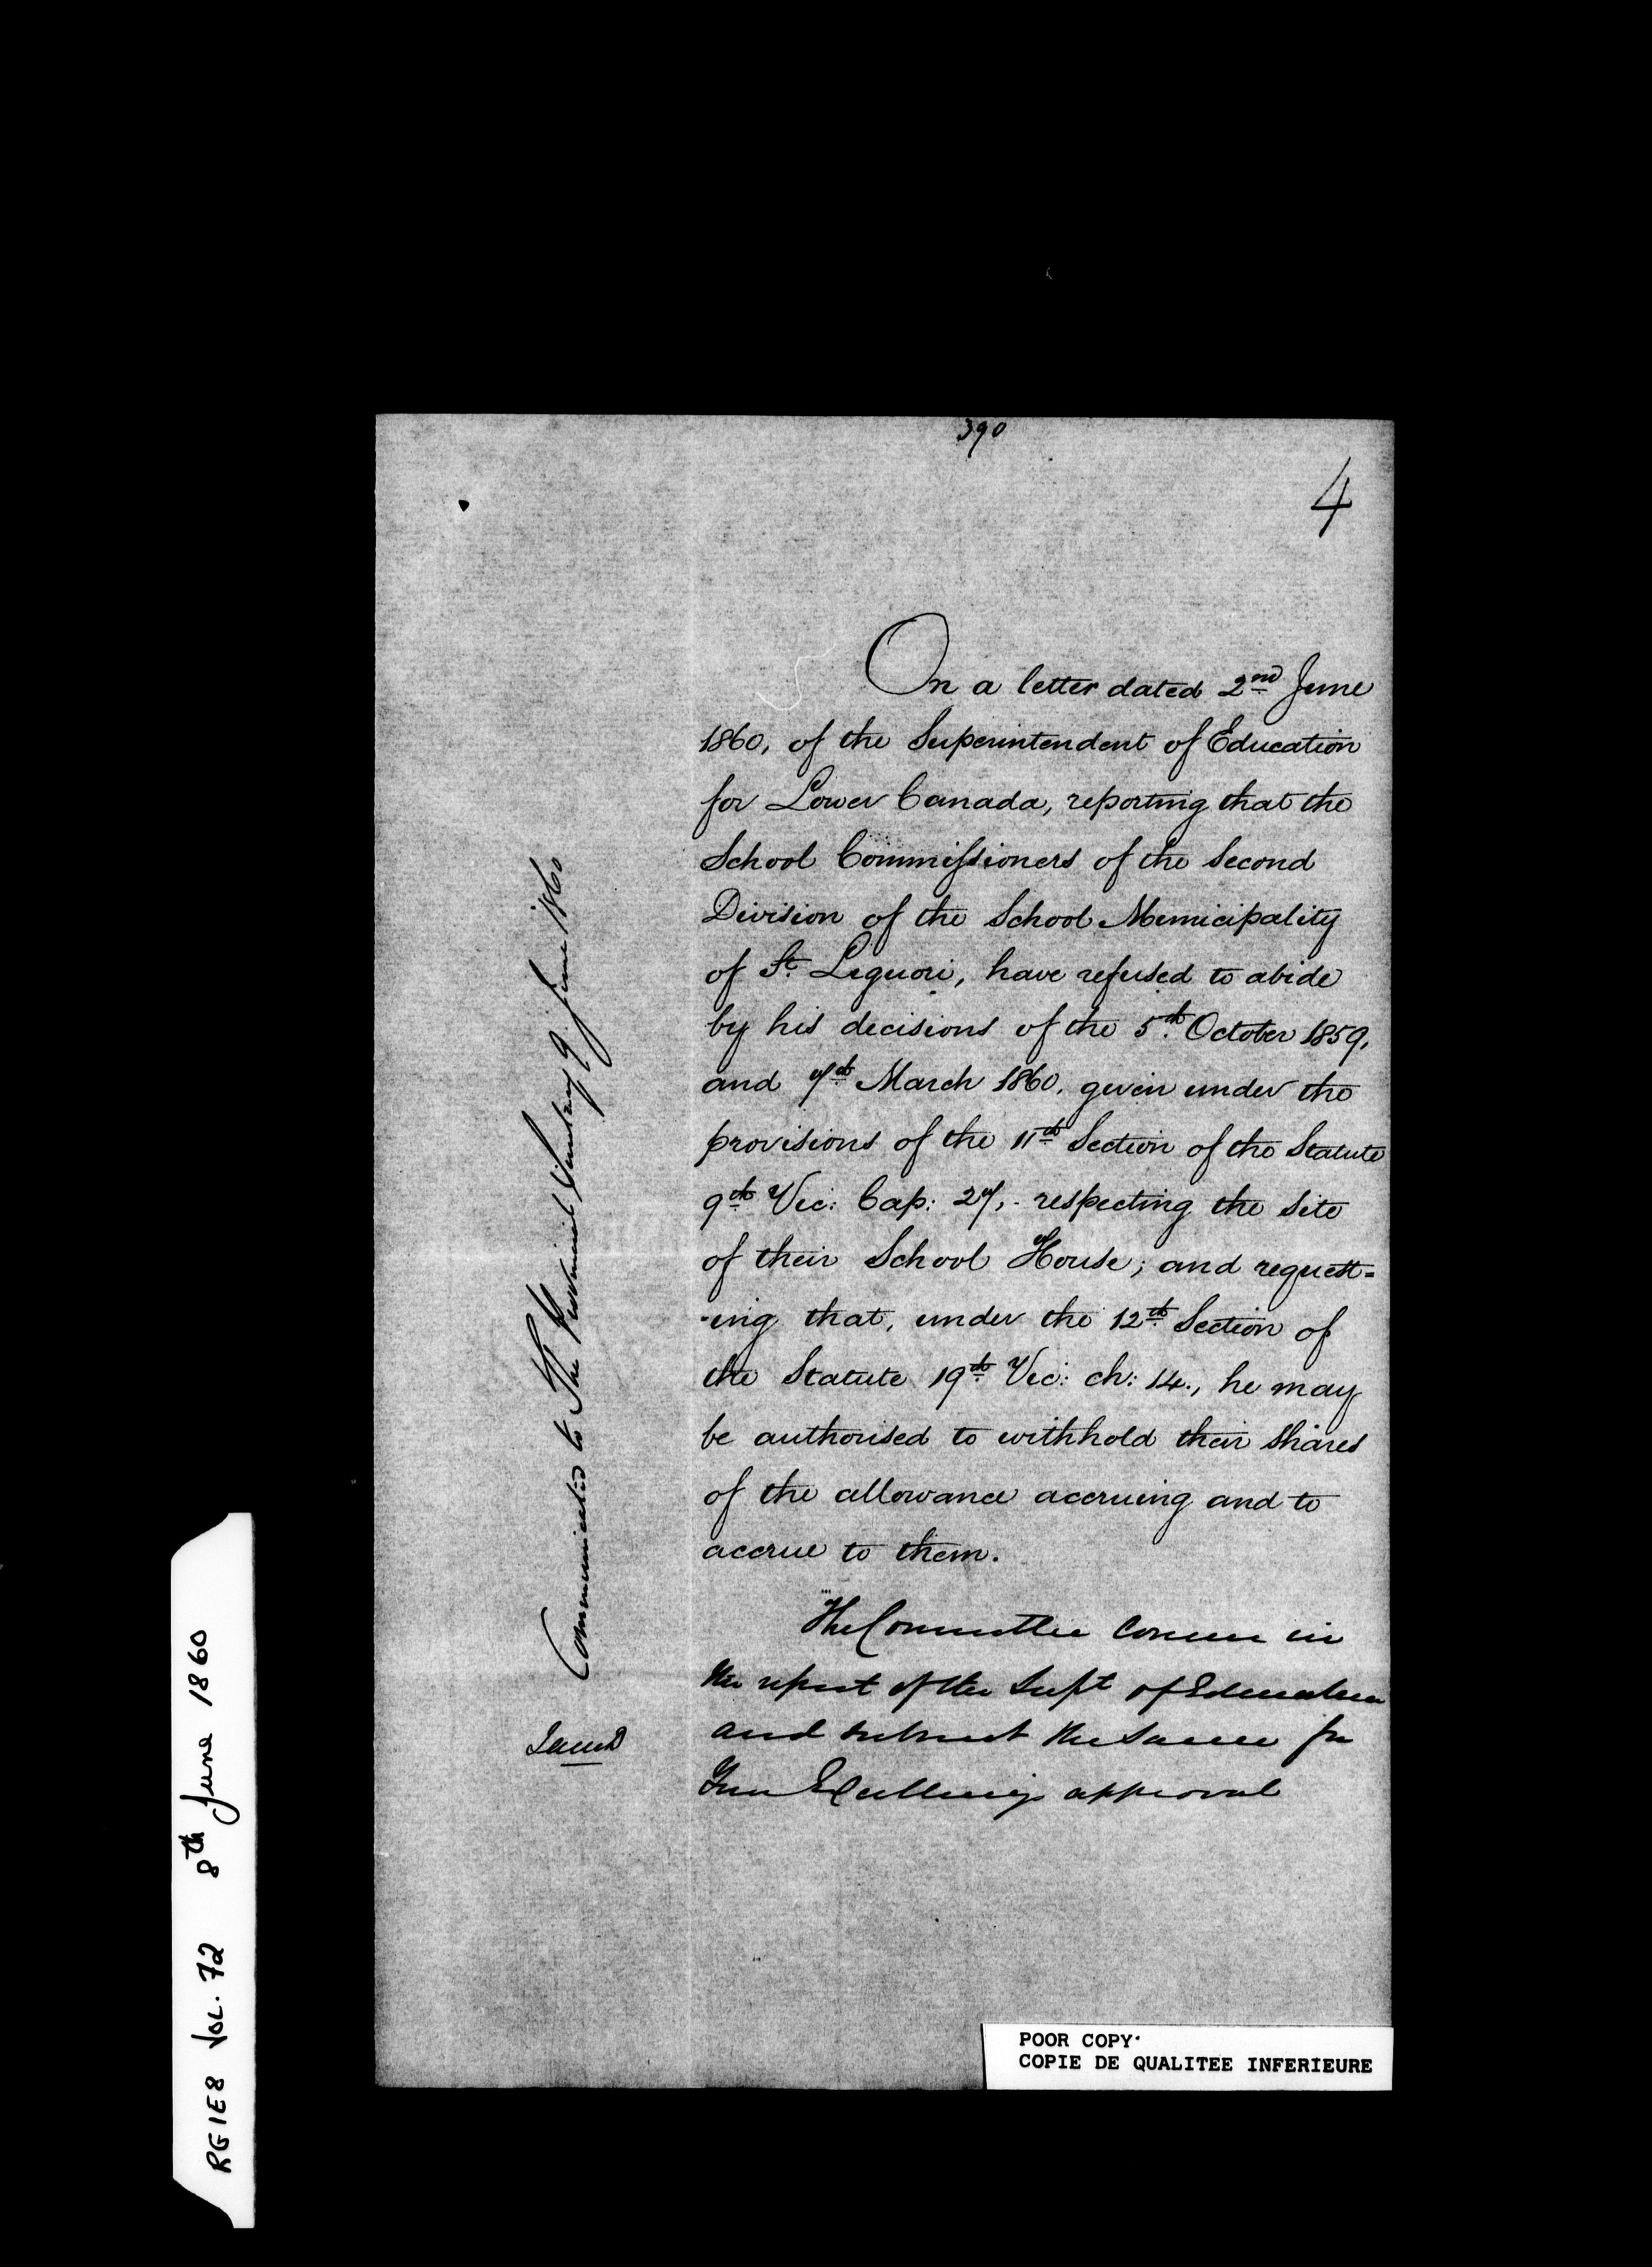 390
4
On a letter dated 2nd June
1860, of the Superintendent of Education
for Lower Canada, reporting that the
School Commissioners of the Second
Division of the School Municipality
of St. Liguori, have refused to abide
by his decisions of the 5th October 1859,
and 7th March 1860, given under the
provisions of the 11th Section of the Statute
9th Vic: Cap: 27, respecting the site
of their School House; and request=
-ing that, under the 12th Section of
the Statute 19th Vic: ch: 14., he may
be authorised to withhold their shares
of the allowance accruing and to
accrue to them.
The Committee concur in
the report of the Supt of Education
and submit the same for
Your Excellency's approval
Communicated to The Provincial Secretary 9 June 1860
RG1E8 VOL. 72 8th June 1860
POOR COPY
COPIE DE QUALITEE INFERIEURE